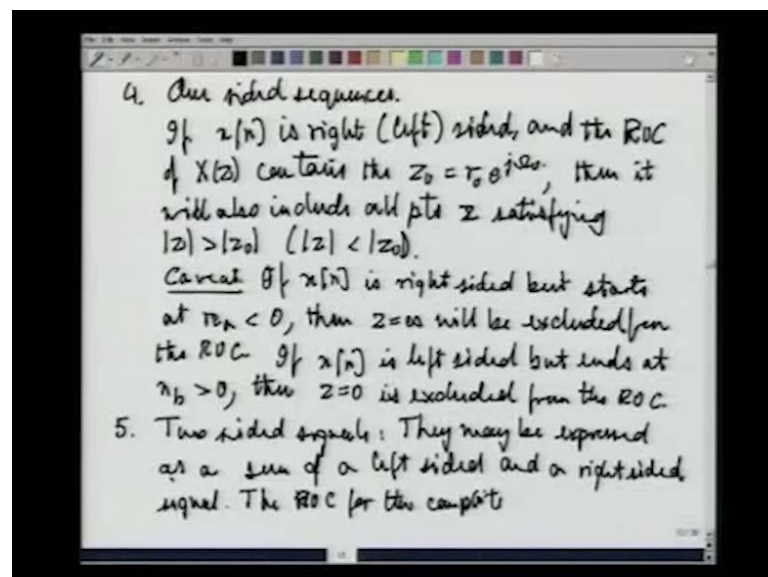 4. One sided sequences.
If x[n] is right (left) sided, and the ROC
of X(z) contains the z₀ = r₀ e^{jΩ₀}, then it
will also include all pts z satisfying
|z| > |z₀| (|z| < |z₀|).
Caveat If x[n] is right sided but starts
at nₐ < 0, then z=∞ will be excluded from
the ROC. If x[n] is left sided but ends at
n_b > 0, then z=0 is excluded from the ROC.
5. Two sided signals: They may be expressed
as a sum of a left sided and a right sided
signal. The ROC for the complete